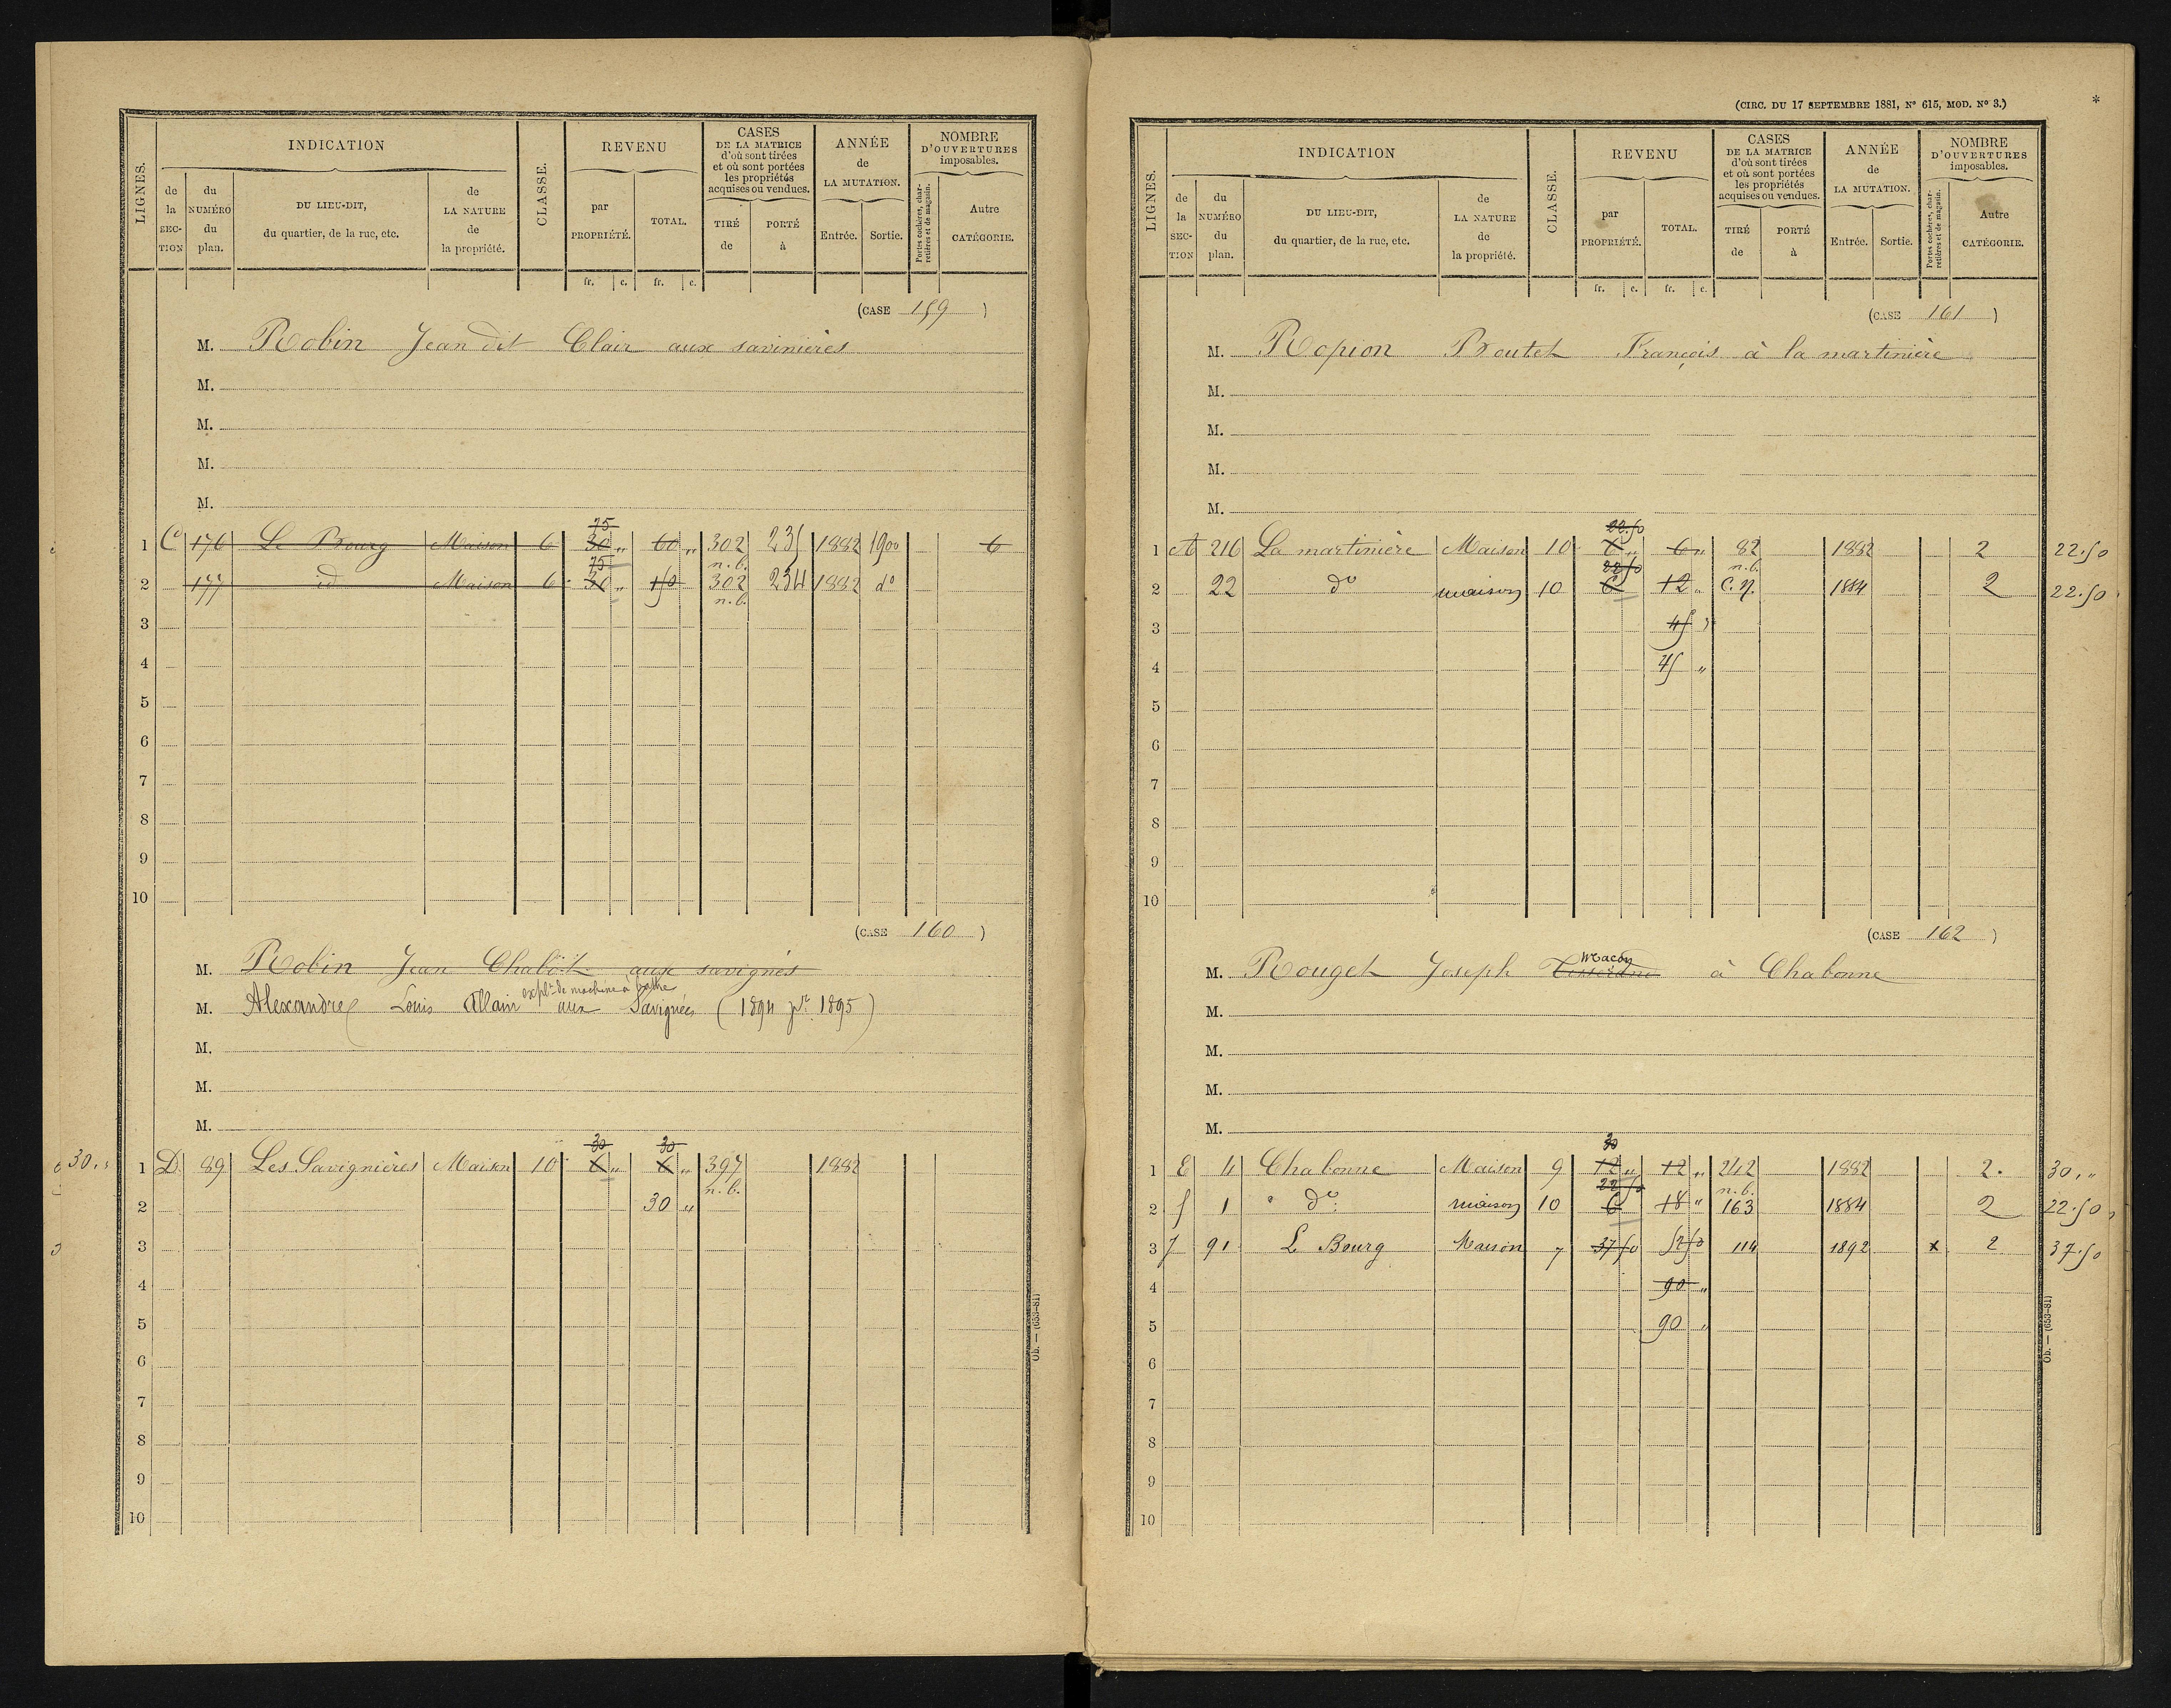 LIGNES. INDICATION CLASSE. REVENU CASES DE LA MATRICE d'où sont tirées et où sont portées les propriétés acquises ou vendues. ANNÉE de LA MUTATION. NOMBRE D'OUVERTURES imposables.
de la SECTION du NUMÉRO du plan. DU LIEU-DIT, du quartier, de la rue, etc. de LA NATURE de la propriété. par PROPRIÉTÉ. TOTAL. TIRÉ de PORTÉ à Entrée. Sortie. Portes cochères, charretières et de magasin. Autre CATÉGORIE.
fr. c. fr. c.
(CASE 159 )
M. Robin Jean dit Clair aux savinières
M.
M.
M.
M.
75
1 Co 176 Le Bourg Maison 6 30 „ 60 „ 302 235 1882 1900 6
75 n.b.
2 177 id Maison 6 30 „ 150 302 234 1882 do
n.b.
3
4
5
6
7
8
9
10
(CASE 160 )
M. Robin Jean Chabot aux savignés
explt de machine à battre
M. Alexandre Louis Allain aux Savignées (1894 pr 1895)
M.
M.
M.
30 30
30 „ 1 D 89 Les Savignières Maison 10 6 „ 6 „ 397 1882
n.b.
2 30 „
3
4
5
6
7
8
9
10
Ob. — (653-81)
(CIRC. DU 17 SEPTEMBRE 1881, No 615, MOD. No 3.) *
LIGNES. INDICATION CLASSE. REVENU CASES DE LA MATRICE d'où sont tirées et où sont portées les propriétés acquises ou vendues. ANNÉE de LA MUTATION. NOMBRE D'OUVERTURES imposables.
de la SECTION du NUMÉRO du plan. DU LIEU-DIT, du quartier, de la rue, etc. de LA NATURE de la propriété. par PROPRIÉTÉ. TOTAL. TIRÉ de PORTÉ à Entrée. Sortie. Portes cochères, charretières et de magasin. Autre CATÉGORIE.
fr. c. fr. c.
(CASE 161 )
M. Ropion Boutet François à la martinière
M.
M.
M.
M.
22.50
1 A 216 La martinière Maison 10 6 „ 6 „ 82 1882 2 22.50
22 50 n.b.
2 22 do maison 10 6 12 „ C.N. 1884 2 22.50
3 45 „
4 45 „
5
6
7
8
9
10
(CASE 162 )
Macon
M. Rouget Joseph à Chabonne
M.
M.
M.
M.
30
1 E 4 Chabonne Maison 9 12 „ 12 „ 242 1882 2. 30 „
22 50 n.b.
2 f 1 do maison 10 6 18 „ 163 1884 2 22.50
3 f 91 L Bourg Maison 7 37 50 52 50 114 1892 x 2 37.50
4 90 „
5 90 „
6
7
8
9
10
Ob. — (653-81)